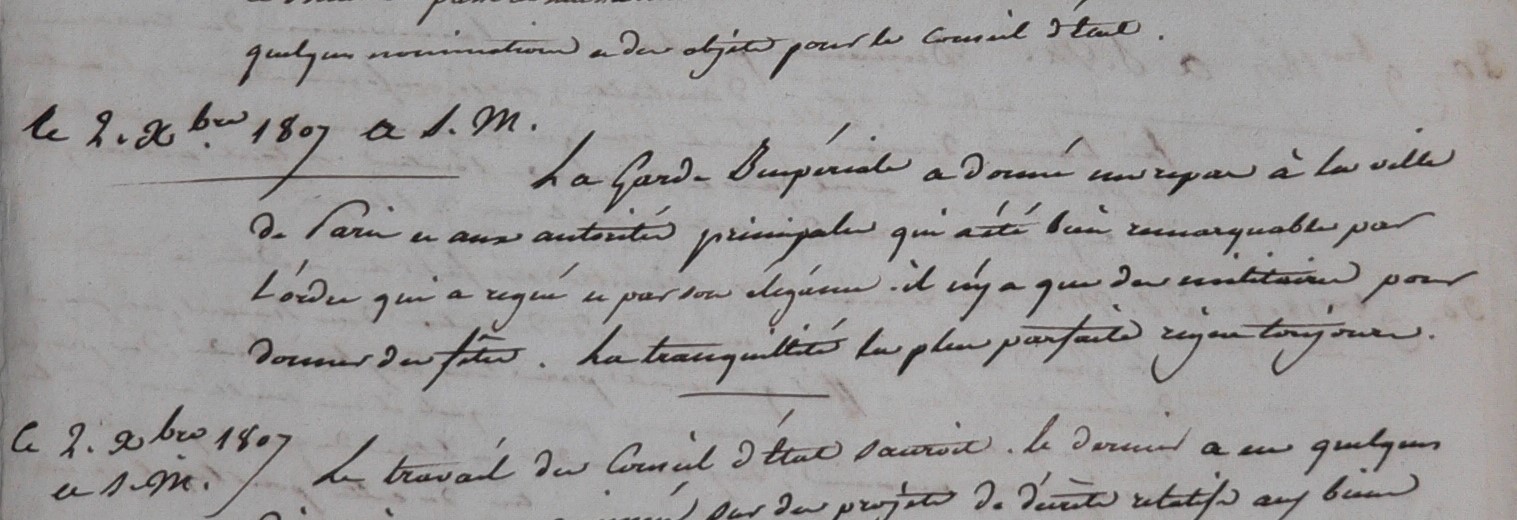 quelques nominations et des objets pour le Conseil d'État.
le 2. Xbre 1807 a S. M.
La Garde Impériale a donné un repas à la ville
de Paris et aux autorités principales qui a été bien remarquable par
l'ordre qui a regné et par son élégance. il n'y a que des militaires pour
donner des fêtes. La tranquillité la plus parfaite règne toujours.
le 2. Xbre 1807
a S. M.
Le travail du Conseil d'État s'accroit. le dernier a eu quelques
sur des projets de décrets relatifs aux biens